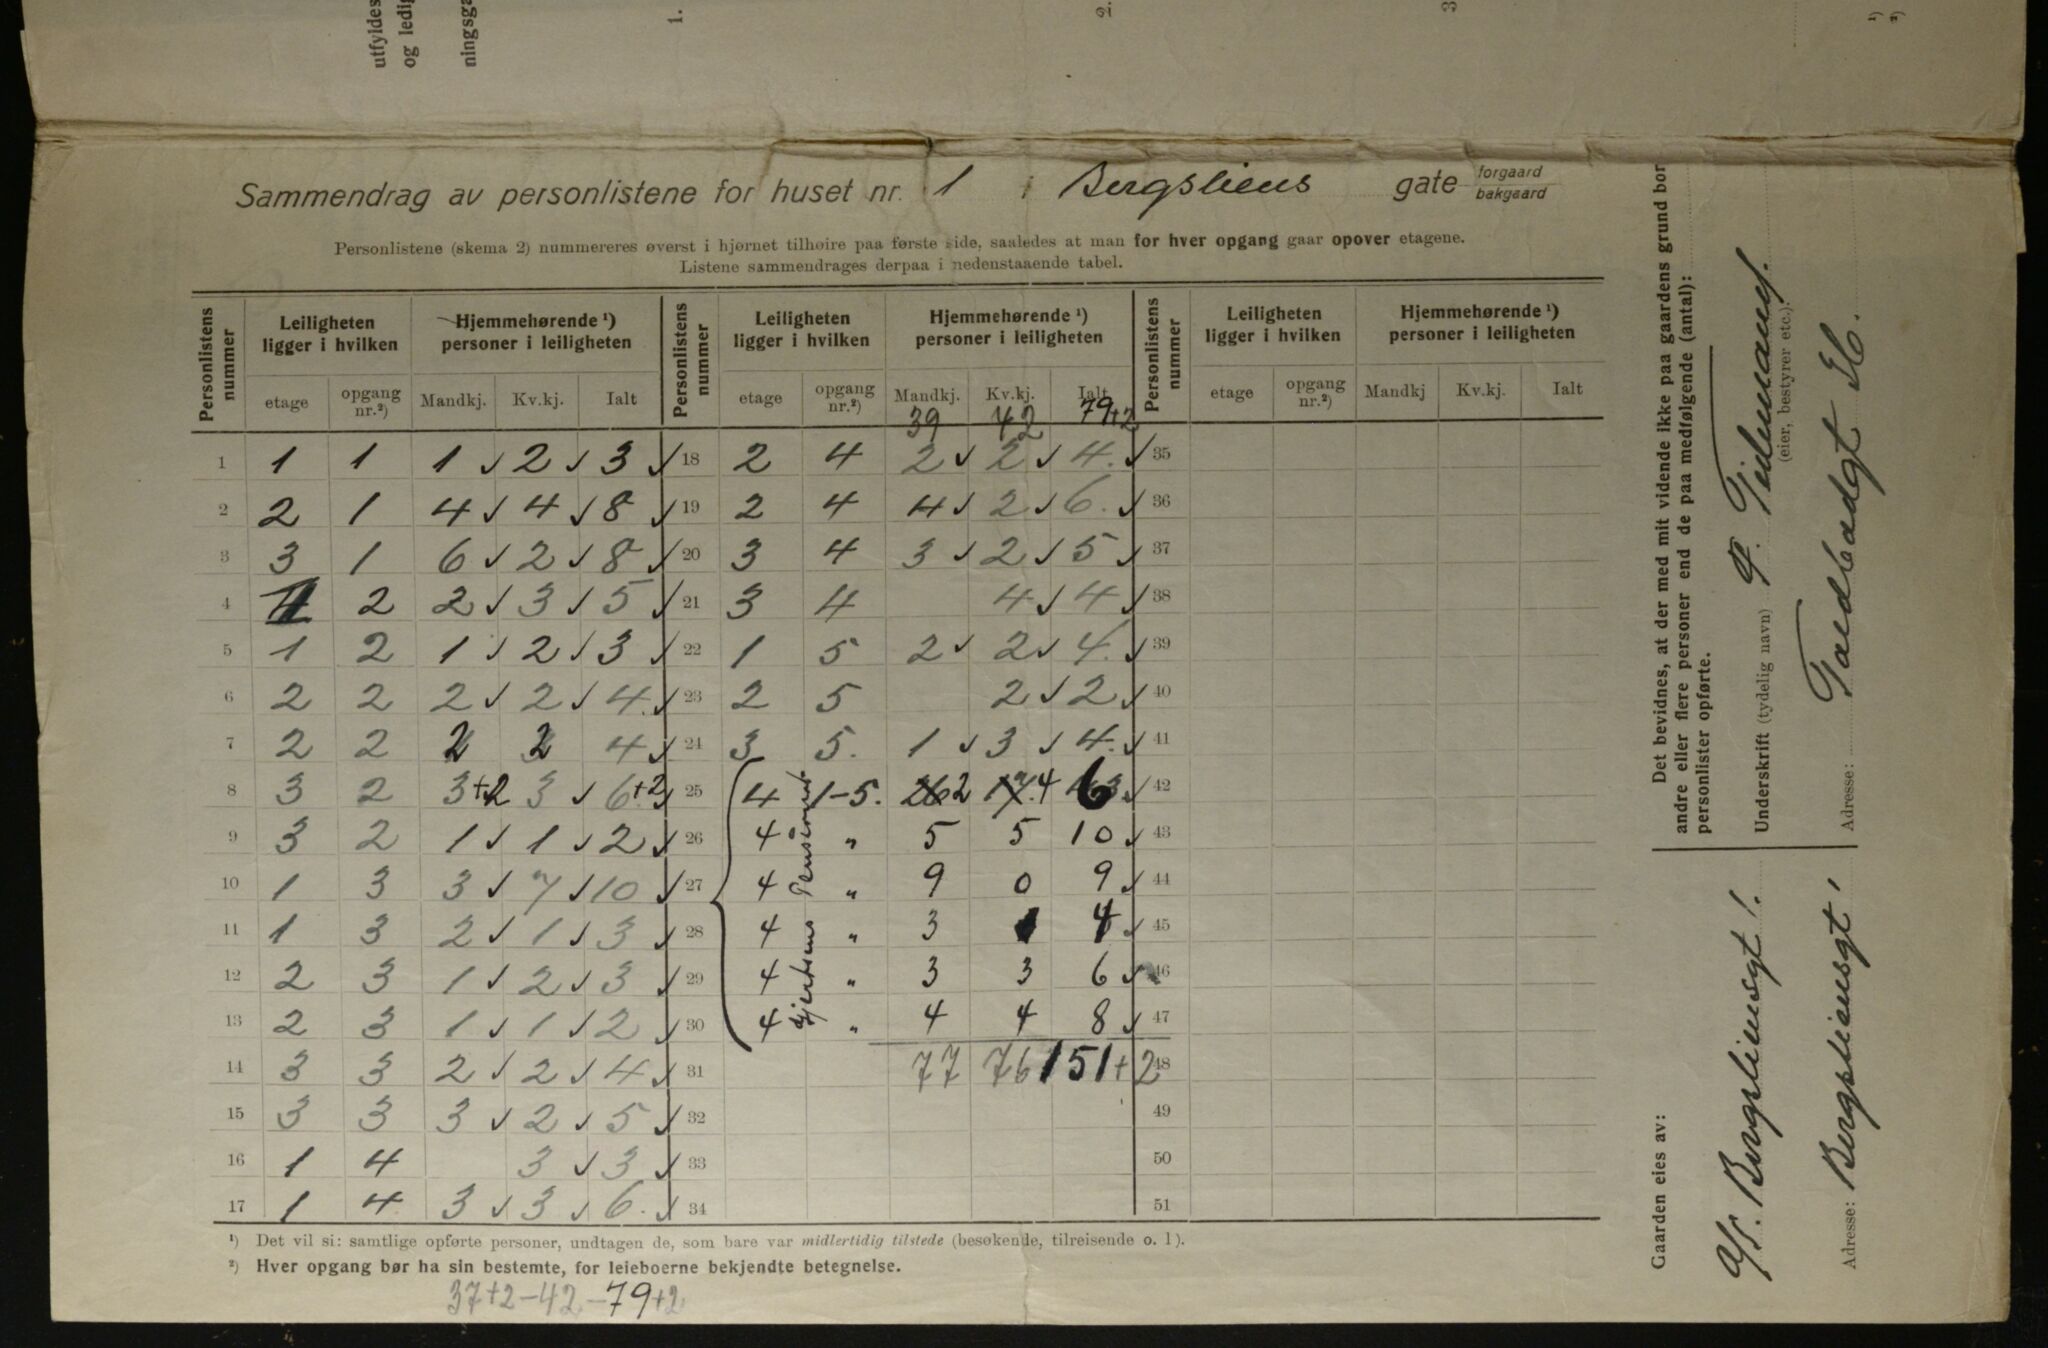 utfyldes
og ledig
ningsga
1.
2.
3
¹)
²)
Sammendrag av personlistene for huset nr. 1 i Bergsliens gate forgaard bakgaard
Personlistene (skema 2) nummereres øverst i hjørnet tilhøire paa første side, saaledes at man for hver opgang gaar opover etagene.
Listene sammendrages derpaa i nedenstaaende tabel.
Personlistens nummer | Leiligheten ligger i hvilken | Hjemmehørende ¹) personer i leiligheten | Personlistens nummer | Leiligheten ligger i hvilken | Hjemmehørende ¹) personer i leiligheten | Personlistens nummer | Leiligheten ligger i hvilken | Hjemmehørende ¹) personer i leiligheten
etage | opgang nr.²) | Mandkj. | Kv.kj. | Ialt | etage | opgang nr.²) | Mandkj. | Kv.kj. | Ialt | etage | opgang nr.²) | Mandkj | Kv.kj. | Ialt
39 42 79+2
1 | 1 | 1 | 1 ✓ | 2 ✓ | 3 ✓ | 18 | 2 | 4 | 2 ✓ | 2 ✓ | 4. ✓ | 35
2 | 2 | 1 | 4 ✓ | 4 ✓ | 8 ✓ | 19 | 2 | 4 | 4 ✓ | 2 ✓ | 6. ✓ | 36
3 | 3 | 1 | 6 ✓ | 2 ✓ | 8 ✓ | 20 | 3 | 4 | 3 ✓ | 2 ✓ | 5 ✓ | 37
4 | 1 | 2 | 2 ✓ | 3 ✓ | 5 ✓ | 21 | 3 | 4 | | 4 ✓ | 4 ✓ | 38
5 | 1 | 2 | 1 ✓ | 2 ✓ | 3 ✓ | 22 | 1 | 5 | 2 ✓ | 2 ✓ | 4. ✓ | 39
6 | 2 | 2 | 2 ✓ | 2 ✓ | 4. ✓ | 23 | 2 | 5 | | 2 ✓ | 2 ✓ | 40
7 | 2 | 2 | 2 | 2 | 4 ✓ | 24 | 3 | 5. | 1 ✓ | 3 ✓ | 4. ✓ | 41
8 | 3 | 2 | 3+2 | 3 ✓ | 6+2 ✓ | 25 | 4 | 1-5. | 26 2 | 17. 4 | 6 3. ✓ | 42
9 | 3 | 2 | 1 ✓ | 1 ✓ | 2 ✓ | 26 | 4 | " | 5 | 5 | 10 ✓ | 43
10 | 1 | 3 | 3 ✓ | 7 ✓ | 10 ✓ | 27 | 4 | " | 9 | 0 | 9 ✓ | 44
11 | 1 | 3 | 2 ✓ | 1 ✓ | 3 ✓ | 28 | 4 | " | 3 | 1 | 4 ✓ | 45
12 | 2 | 3 | 1 ✓ | 2 ✓ | 3 ✓ | 29 | 4 | " | 3 | 3 | 6 ✓ | 46
13 | 2 | 3 | 1 ✓ | 1 ✓ | 2 ✓ | 30 | 4 | " | 4 | 4 | 8 ✓ | 47
14 | 3 | 3 | 2 ✓ | 2 ✓ | 4 ✓ | 31 | | | 77 | 76 | 151+2 | 48
15 | 3 | 3 | 3 ✓ | 2 ✓ | 5 ✓ | 32 | 49
16 | 1 | 4 | | 3 ✓ | 3 ✓ | 33 | 50
17 | 1 | 4 | 3 ✓ | 3 ✓ | 6. ✓ | 34 | 51
¹) Det vil si: samtlige opførte personer, undtagen de, som bare var midlertidig tilstede (besøkende, tilreisende o. l).
²) Hver opgang bør ha sin bestemte, for leieboerne bekjendte betegnelse.
37+2-42-79+2
Det bevidnes, at der med mit vidende ikke paa gaardens grund bor
andre eller flere personer end de paa medfølgende (antal):
personlister opførte.
Underskrift (tydelig navn)
(eier, bestyrer etc.).
Adresse:
Gaarden eies av:
A/S. Bergsliensgt 1.
Adresse: Bergsliensgt 1